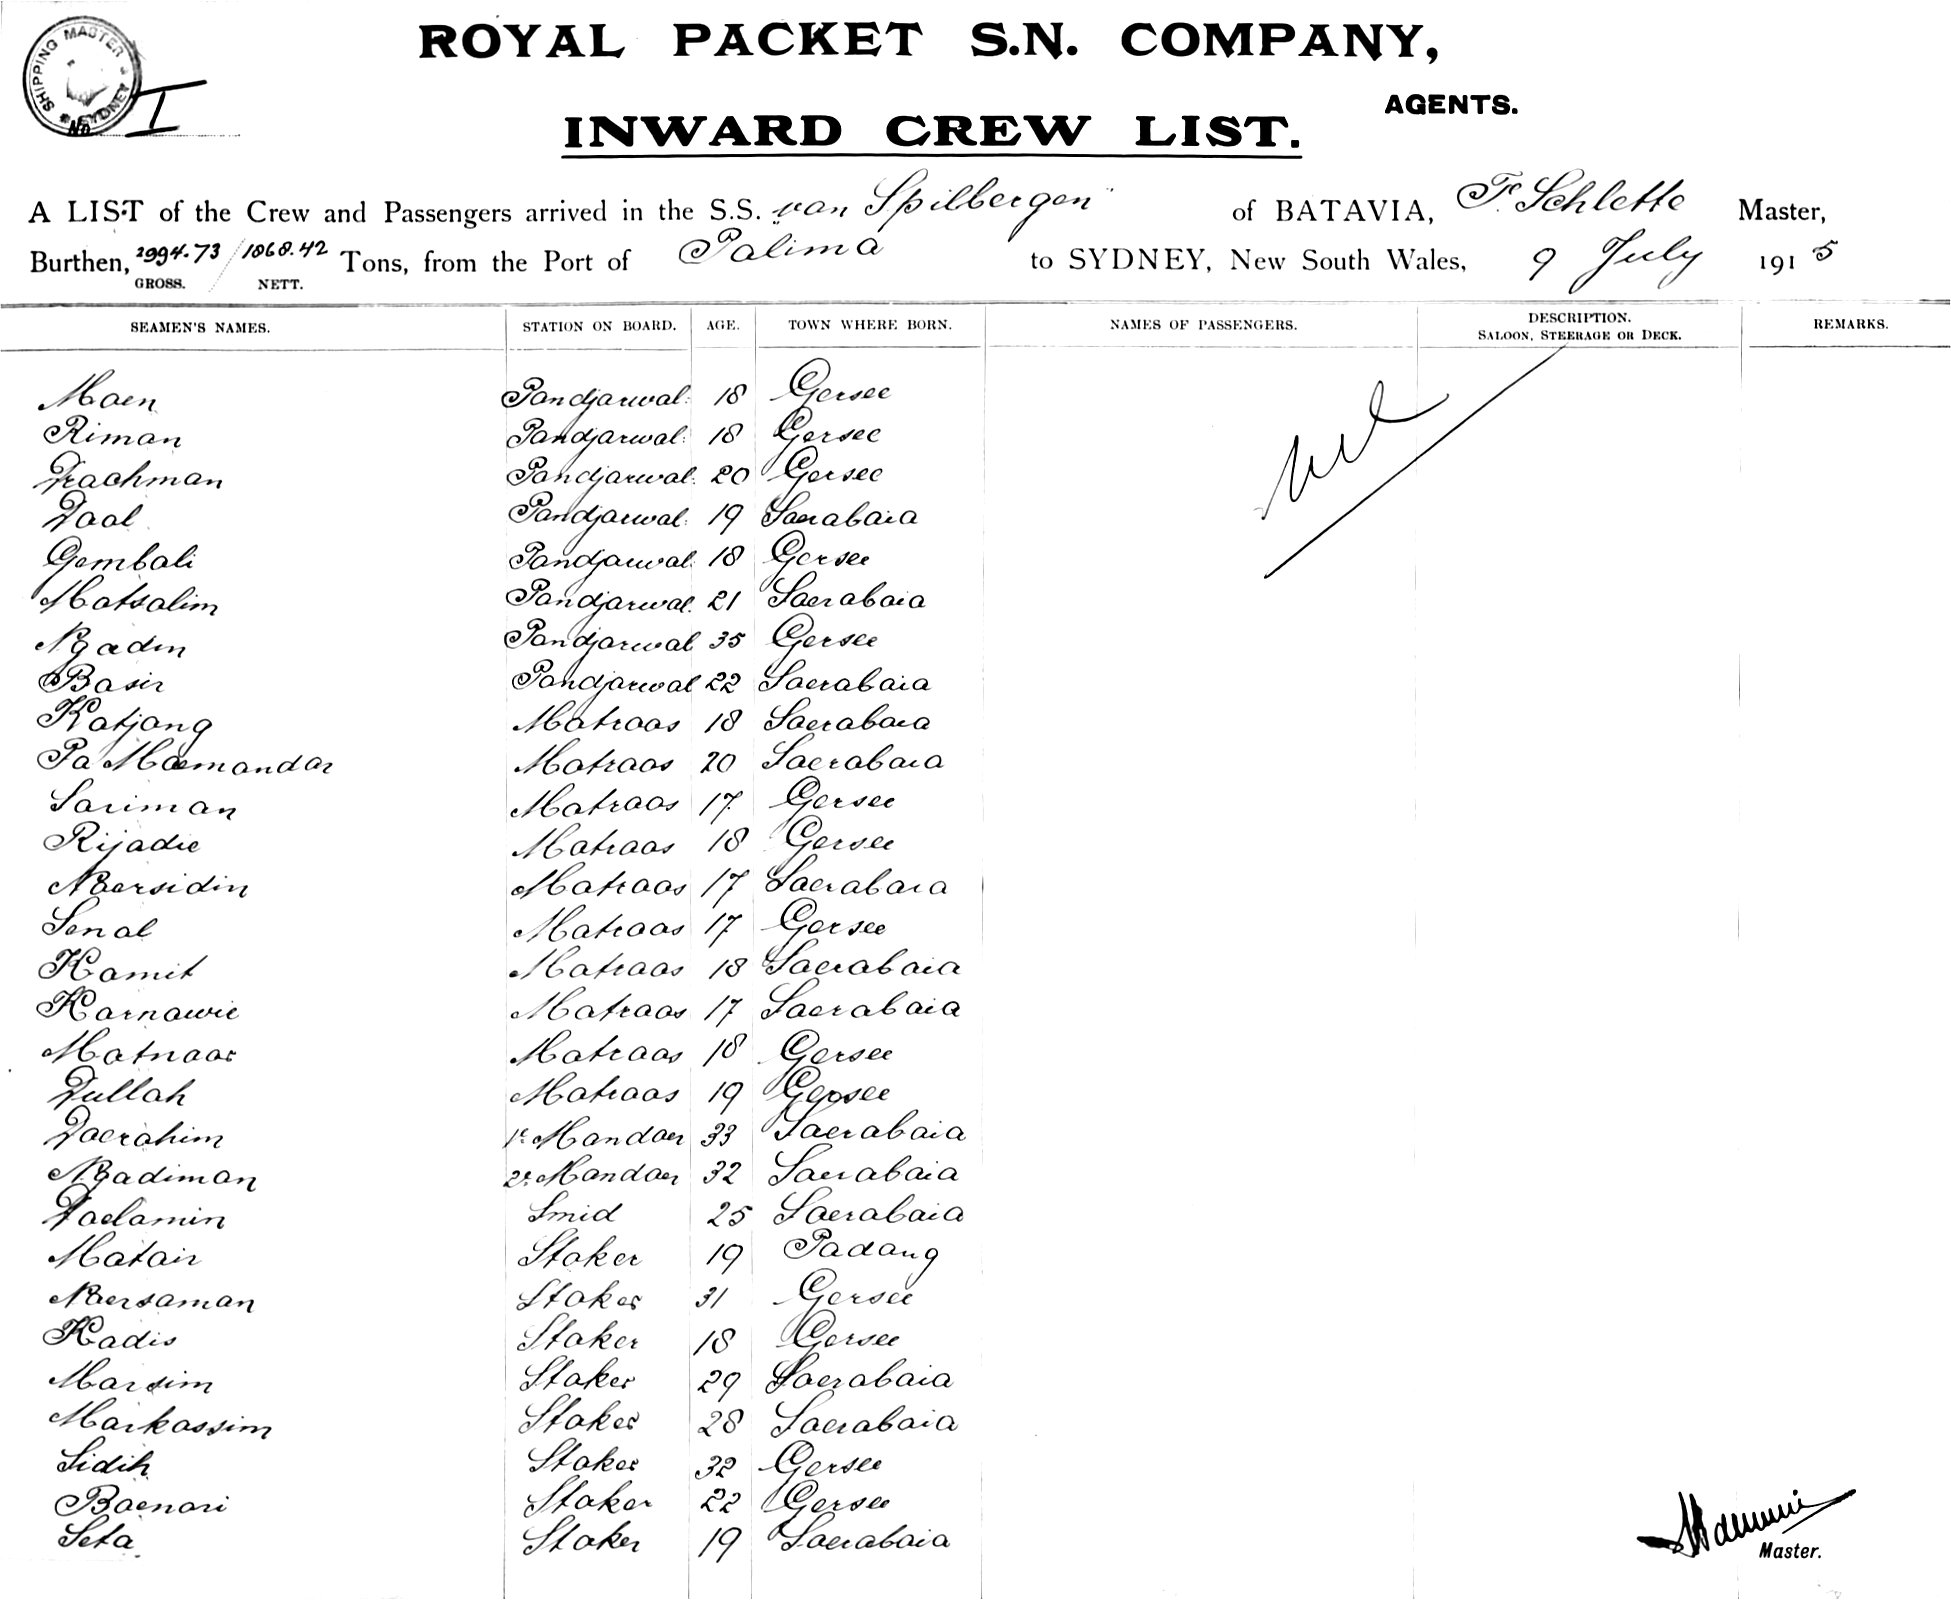 SHIPPING MASTER
SYDNEY
No I
ROYAL PACKET S.N. COMPANY,
AGENTS.
INWARD CREW LIST.
A LIST of the Crew and Passengers arrived in the S.S. "van Spilbergen" of BATAVIA, F. Schlette Master,
Burthen, 2994.73 / 1868.42 Tons, from the Port of Palima to SYDNEY, New South Wales, 9 July 1915
GROSS. NETT.
SEAMEN'S NAMES. STATION ON BOARD. AGE. TOWN WHERE BORN. NAMES OF PASSENGERS. DESCRIPTION. SALOON, STEERAGE OR DECK. REMARKS.
Maen Pandjarwal. 18 Gersee
Riman Pandjarwal. 18 Gersee
Drachman Pandjarwal. 20 Gersee
Daal Pandjarwal. 19 Saerabaia
Gembali Pandjarwal. 18 Gersee
Matsalim Pandjarwal. 21 Saerabaia
Ngadin Pandjarwal 35 Gersee
Basir Pandjarwal 22 Saerabaia
Katjang Matraas 18 Saerabaia
Pa Maemandar Matraas 20 Saerabaia
Sariman Matraas 17 Gersee
Rijadie Matraas 18 Gersee
Naersidin Matraas 17 Saerabaia
Senal Matraas 17 Gersee
Kamit Matraas 18 Saerabaia
Karnawie Matraas 17 Saerabaia
Matnaar Matraas 18 Gersee
Dullah Matraas 19 Gersee
Daerahim 1e Mandaer 33 Saerabaia
Ngadiman 2e Mandaer 32 Saerabaia
Daelamin Smid 25 Saerabaia
Matair Stoker 19 Padang
Naersaman Stoker 31 Gersee
Kadis Stoker 18 Gersee
Marsim Stoker 29 Saerabaia
Markassim Stoker 28 Saerabaia
Sidik Stoker 32 Gersee
Baenari Stoker 22 Gersee
Seta Stoker 19 Saerabaia
Master.